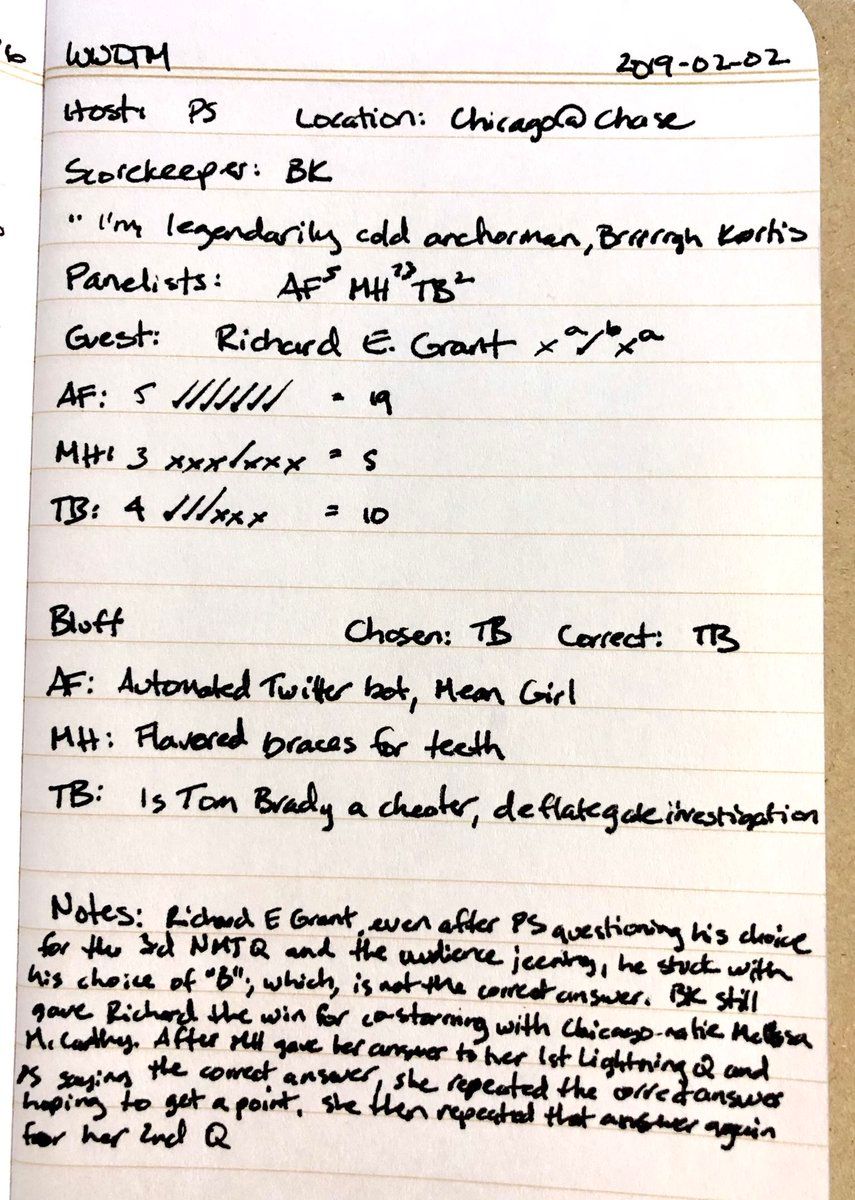 WWDTM 2019-02-02
Host: PS Location: Chicago@Chase
Scorekeeper: BK
"I'm legendarily cold anchorman, Brrrrgh Kurtis
Panelists: AF⁵ MH¹³ TB²
Guest: Richard E. Grant x ᵃ ✓ ᵇ x ᵃ
AF: 5 ✓✓✓✓✓✓✓ = 19
MH: 3 xxx✓xxx = 5
TB: 4 ✓✓✓xxx = 10
Bluff Chosen: TB Correct: TB
AF: Automated Twitter bot, Mean Girl
MH: Flavored braces for teeth
TB: Is Tom Brady a cheater, deflategate investigation
Notes: Richard E Grant, even after PS questioning his choice
for the 3rd NMJ Q and the audience jeering, he stuck with
his choice of "B"; which, is not the correct answer. BK still
gave Richard the win for co-starring with Chicago-native Melissa
McCarthy. After MH gave her answer to her 1st Lightning Q and
PS saying the correct answer, she repeated the correct answer
hoping to get a point. She then repeated that answer again
for her 2nd Q